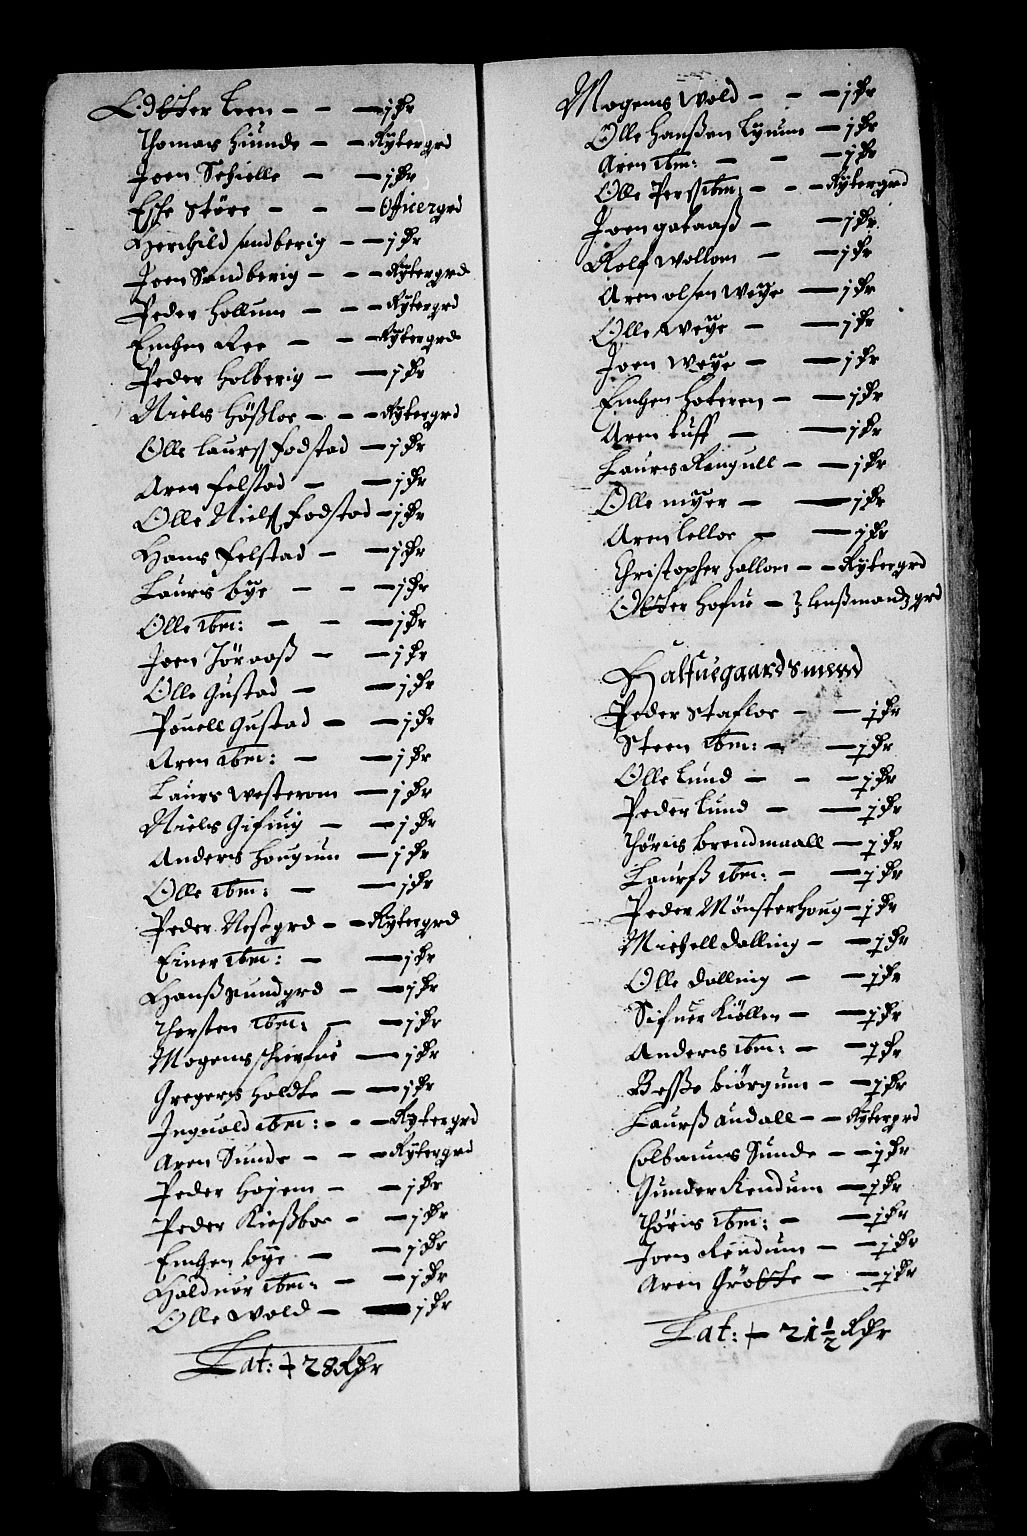 Ditter Leen – – – 1 dr
Thomas Hunde – – Rytergrd
Joen Schielle – – 1 dr
Esche Støre – – – Officergrd
Herchild Sandberig – – 1 dr
Joen Sandberig – – – Rytergrd
Peder Hollum – – – Rytergrd
Einchen Ree – – – Rytergrd
Peder Holberig – – 1 dr
Niels Hößloe – – – Rytergrd
Olle Laurs: Fodstad – 1 dr
Aren Felstad – – 1 dr
Olle Niels: Fodstad – 1 dr
Hans Felstad – – 1 dr
Laurs bye – – – 1 dr
Olle ibm: – – – 1 dr
Joen Jöraaß – – 1 dr
Olle Gustad – – 1 dr
Pouell Gustad – – 1 dr
Aren ibm: – – 1 dr
Laurs Westerom – 1 dr
Niels Gifuig – – 1 dr
Anders Hougum – 1 dr
Olle ibm: – – 1 dr
Peder Nestgrd – – Rytergrd
Einer ibm: – – 1 dr
Hanß Sundgrd – – 1 dr
Thersten ibm: – – 1 dr
Mogens Schierfue – 1 dr
Gregers Holdte – – 1 dr
Inguold ibm: – – – Rytergrd
Aren Sunde – – – Rytergrd
Peder Hojem – – 1 dr
Peder Kießboe – – 1 dr
Einchen bye – – 1 dr
Holduor ibm: – – 1 dr
Olle Wold – – 1 dr
Lat: – 28 Rdr
Mogens Wold – – – 1 dr
Olle Hanßen Lyuum – 1 dr
Aren ibm: – – – 1 dr
Olle Pers: ibm: – – – Rytergrd
Joen gataaß – – 1 dr
Rolf Wollom – – 1 dr
Aren Olsen Weye – 1 dr
Olle Weye – – 1 dr
Joen Weye – – 1 dr
Einchen Hoteren – – 1 dr
Aren Luff – – 1 dr
Laurs Rangull – – 1 dr
Olle myer – – 1 dr
Aren Lelloe – – 1 dr
Christopher Hollom – – Rytergrd
Otter Hofue – Lenßmandz grd
Halfuegaardsmend
Peder Stafloe – – ½ dr
Steen ibm: – – ½ dr
Olle Lund – – – ½ dr
Peder Lund – – ½ dr
Thöris brendmaall – ½ dr
Laurß ibm: – – ½ dr
Peder Mönsterhoug – ½ dr
Michell Dalling – – ½ dr
Olle Dalling – – ½ dr
Sifuer Kiöllen – – ½ dr
Anders ibm: – – ½ dr
Beßße biörgum – – ½ dr
Laurß audall – – Rytergrd
Colbanus Sunde – – ½ dr
Gunder Rendum – ½ dr
Thöris ibm: – – ½ dr
Joen Rendum – – ½ dr
Aren Grötte – – ½ dr
Lat: – 21½ Rdr